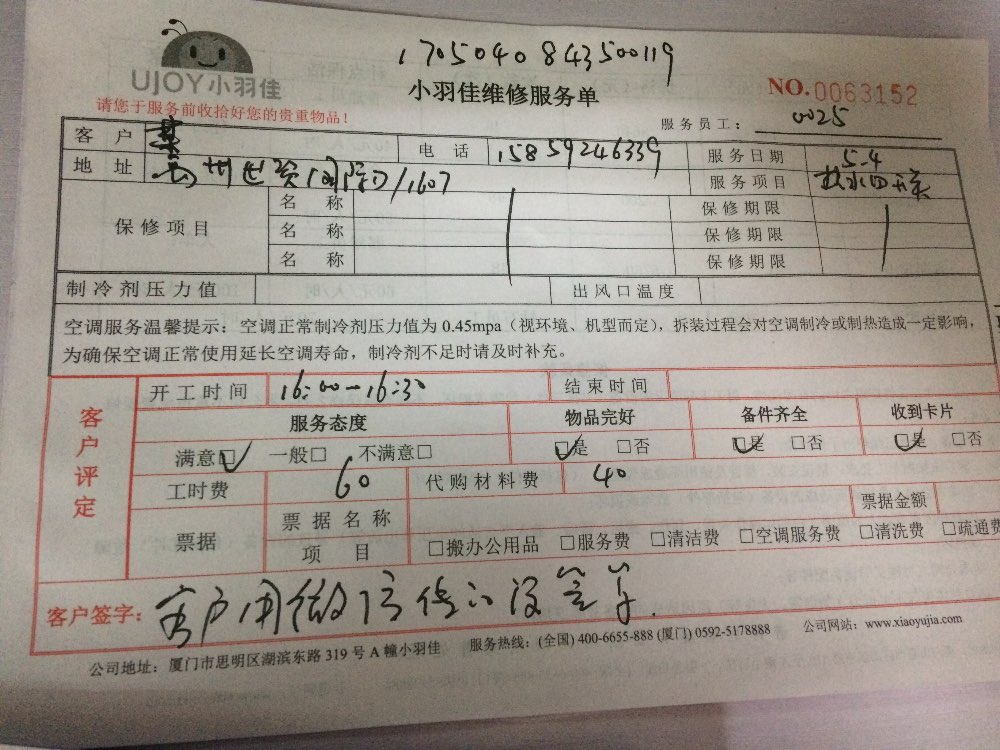 170504084350 0119
UJOY小羽佳
小羽佳维修服务单
NO.0063152
请您于服务前收拾好您的贵重物品！
服务员工： 0025
客户 电话 15859246339 服务日期 5-4
地址 /1607 服务项目
保修项目 名称 保修期限
名称 保修期限
名称 保修期限
制冷剂压力值 出风口温度
空调服务温馨提示：空调正常制冷剂压力值为 0.45mpa（视环境、机型而定），拆装过程会对空调制冷或制热造成一定影响，
为确保空调正常使用延长空调寿命，制冷剂不足时请及时补充。
客户评定
开工时间 16:00—16:30 结束时间
服务态度 物品完好 备件齐全 收到卡片
满意□ 一般□ 不满意□ □是 □否 □是 □否 □是 □否
工时费 60 代购材料费 40
票据 票据名称 票据金额
项目 □搬办公用品 □服务费 □清洁费 □空调服务费 □清洗费 □疏通费
客户签字：客户用微信 没签字.
公司地址：厦门市思明区湖滨东路 319 号 A 幢小羽佳 服务热线：(全国) 400-6655-888 (厦门) 0592-5178888 公司网站：www.xiaoyujia.com